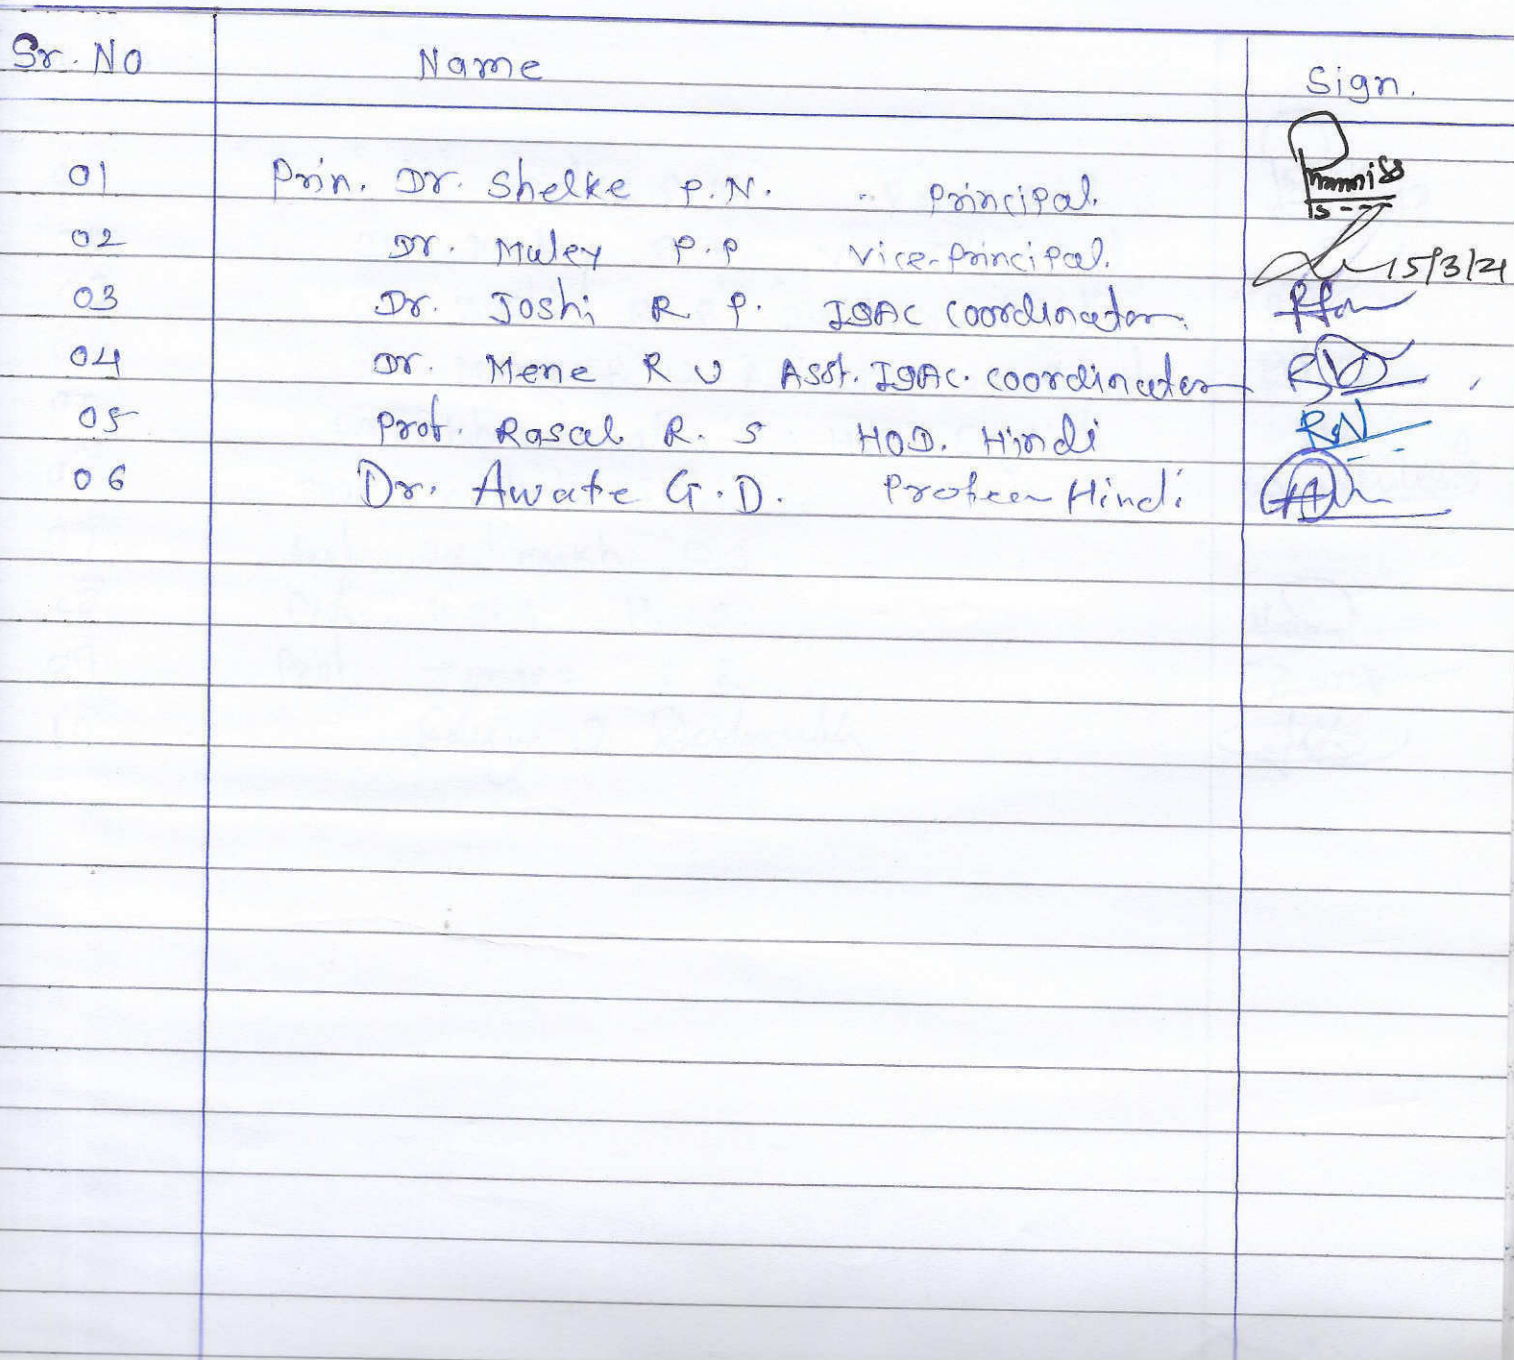 Sr. No Name Sign.
01 Prin. Dr. Shelke P.N. - Principal.
02 Dr. Muley P.P Vice-Principal. 15/3/21
03 Dr. Joshi R P. IQAC Coordinator.
04 Dr. Mene R V Asst. IQAC. Coordinator
05 Prof. Rasal R. S HOD. Hindi
06 Dr. Awate G.D. Hindi